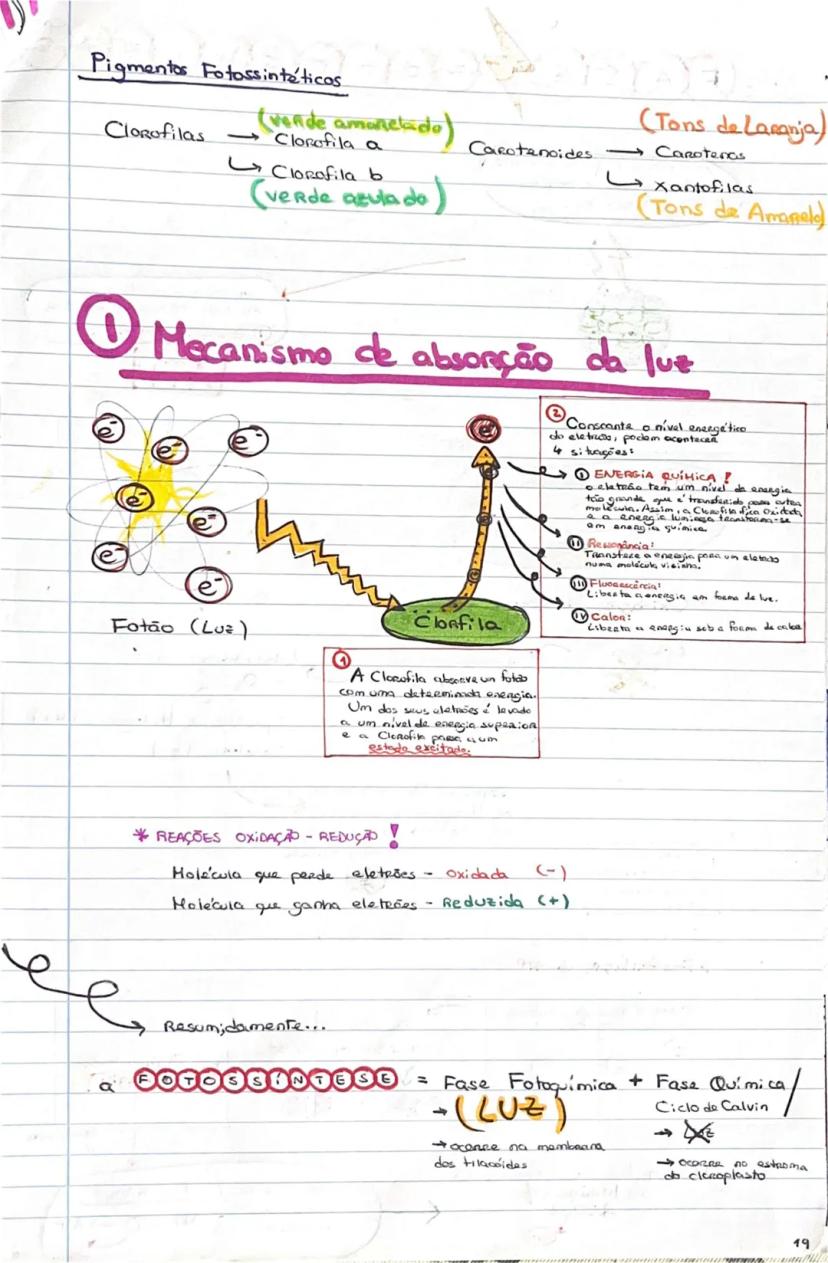 Pigmentos Fotossintéticos
(verde amarelado)
(Tons de Laranja)
Clorofilas → Clorofila a
Carotenoides → Carotenos
↳ Clorofila b
↳ xantofilas
(verde azulado)
(Tons de Amarelo)
① Mecanismo de absorção da luz
e⁻ e⁻ e⁻
e⁻ e⁻
e⁻ e⁻
Fotão (Luz)
Clorfila
e⁻
②
Consoante o nível energético
do eletrão, podem acontecer
4 situações:
Ⓘ ENERGIA QUÍMICA!
o eletrão tem um nível de energia
tão grande que é transferido para outra
molécula. Assim, a Clorofila fica oxidada
e a energia luminosa transforma-se
em energia química.
ⓘⓘ Ressonância:
Transfere a energia para um eletrão
numa molécula vizinha.
ⓘⓘⓘ Fluorescência:
Liberta a energia em forma de luz.
ⓘⓥ Calor:
Liberta a energia sob a forma de calor
①
A Clorofila absorve un fotão
com uma determinada energia.
Um dos seus eletrões é levado
a um nível de energia superior
e a Clorofila passa a um
estado excitado.
* REAÇÕES OXIDAÇÃO - REDUÇÃO!
Molécula que perde eletrões - oxidada (-)
Molécula que ganha eletrões - Reduzida (+)
Resumidamente...
a FOTOSSÍNTESE = Fase Fotoquímica + Fase Química/
→ (LUZ)
Ciclo de Calvin
→ Luz
→ ocorre na membrana
dos tilacóides
→ ocorre no estroma
do cloroplasto
19